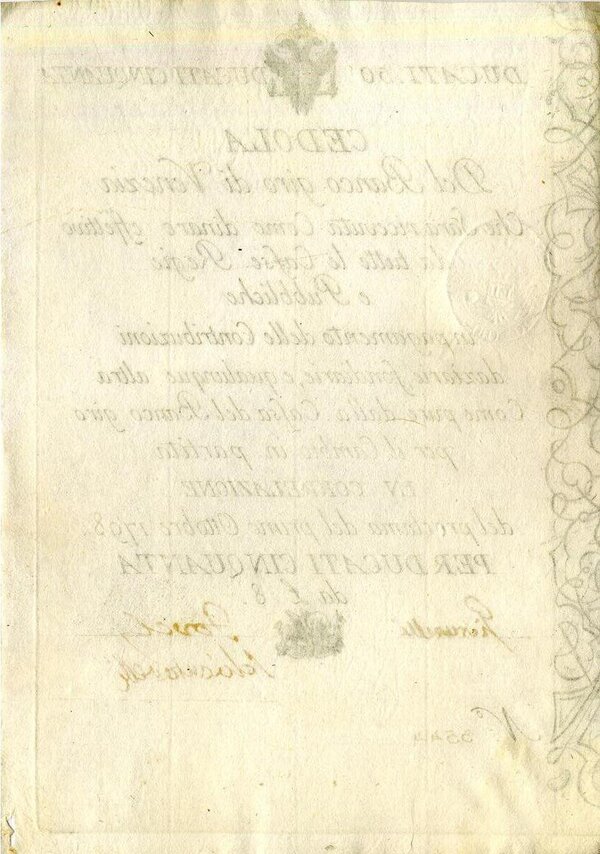 DUCATI 50 DUCATI CINQUANTA
CEDOLA
Del Banco giro di Venezia
Che Sarà ricevuta Come dinaro effettivo
da tutte le Casse Regie
e Pubbliche
in pagamento delle Contribuzioni
daziarie, fondiarie, e qualunque altra
Come pure dalla Cassa del Banco giro
per il Cambio in partita
IN CORRELAZIONE
del proclama del primo Ottobre 1798.
PER DUCATI CINQUANTA
da L. 8.
N.º